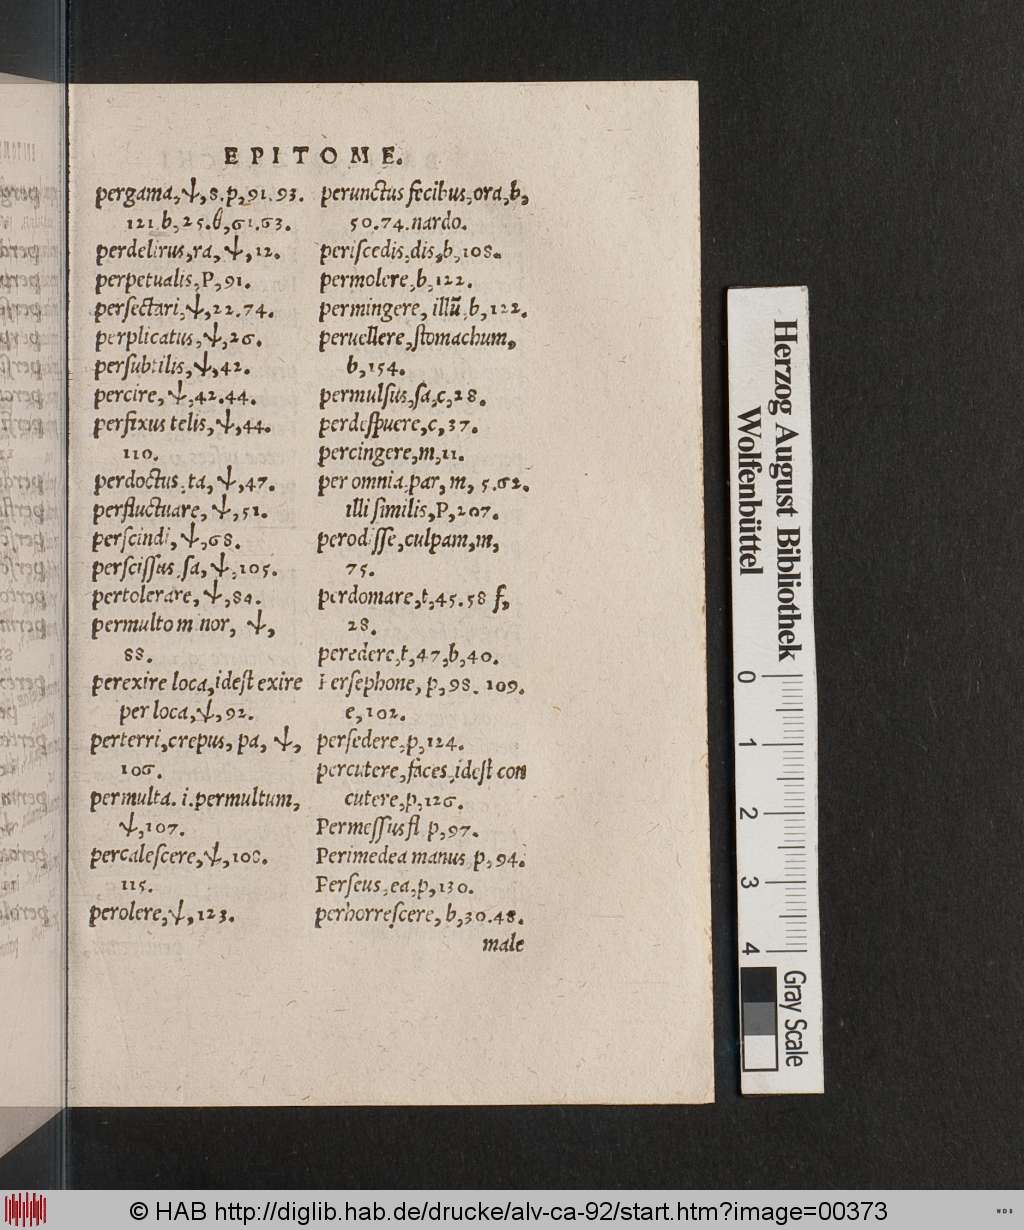 EPITOME.
pergama,ψ,8.p,91.93.
121.b,25.θ,61.63.
perdelirus,ra,ψ,12.
perpetualis,P,91.
perſectari,ψ,22.74.
perplicatus,ψ,26.
perſubtilis,ψ,42.
percire,ψ,42.44.
perfixus telis,ψ,44.
110.
perdoctus,ta,ψ,47.
perfluctuare,ψ,51.
perſcindi,ψ,68.
perſciſſus,ſa,ψ,105.
pertolerare,ψ,84.
permulto minor, ψ,
88.
perexire loca,ideſt exire
per loca,ψ,92.
perterri,crepus, pa, ψ,
106.
permulta. i.permultum,
ψ,107.
percaleſcere,ψ,108.
115.
perolere,ψ,123.
perunctus fecibus,ora,b,
50.74.nardo.
periſcedis,dis,b,108.
permolere,b,122.
permingere, illū,b,122.
peruellere,ſtomachum,
b,154.
permulſus,ſa,c,28.
perdeſpuere,c,37.
percingere,m,11.
per omnia,par, m, 5.62.
illi ſimilis,P,207.
perodiſſe,culpam,m,
75.
perdomare,t,45.58 f,
28.
peredere,t,47,b,40.
Perſephone, p,98. 109.
e,102.
perſedere,p,124.
percutere,faces,ideſt con
cutere,p,126.
Permeſſus fl p,97.
Perimedea manus p,94.
Perſeus,ea,p,130.
perhorreſcere,b,30.48.
male
Herzog August Bibliothek
Wolfenbüttel
0 1 2 3 4
Gray Scale
© HAB http://diglib.hab.de/drucke/alv-ca-92/start.htm?image=00373